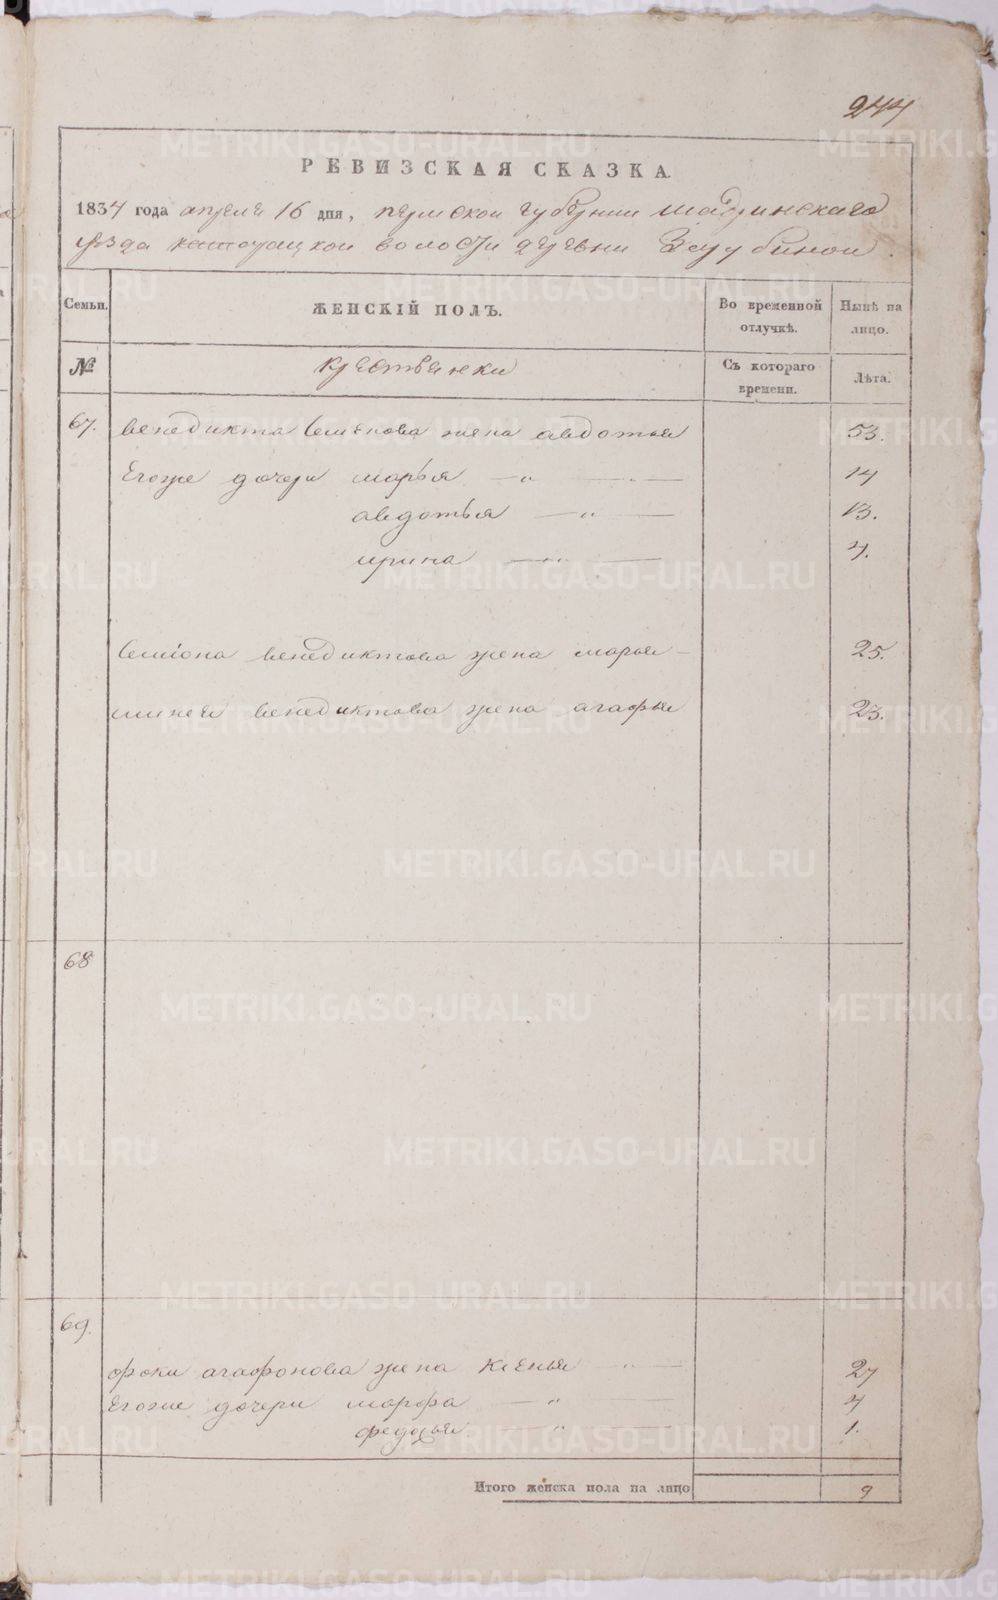 244
РЕВИЗСКАЯ СКАЗКА.
1834 года апреля 16 дня, пермской губернии шадринскаго
уезда волости деревни
Семьи. ЖЕНСКІЙ ПОЛЪ. Во временной отлучкѣ. Нынѣ на лицо.
№ крестьянки Съ котораго времени. Лѣта.
67. венедикта Семенова жена авдотья 53.
Егоже дочери марья 14
авдотья 13.
ирина 4.
Семіона венедиктова жена марья 25.
минея венедиктова жена агафья 23.
68
69.
фоки агафонова жена ксенья 27
Егоже дочери марфа 4
федосья 1.
Итого женска пола на лицо 9
METRIKI.GASO-URAL.RU